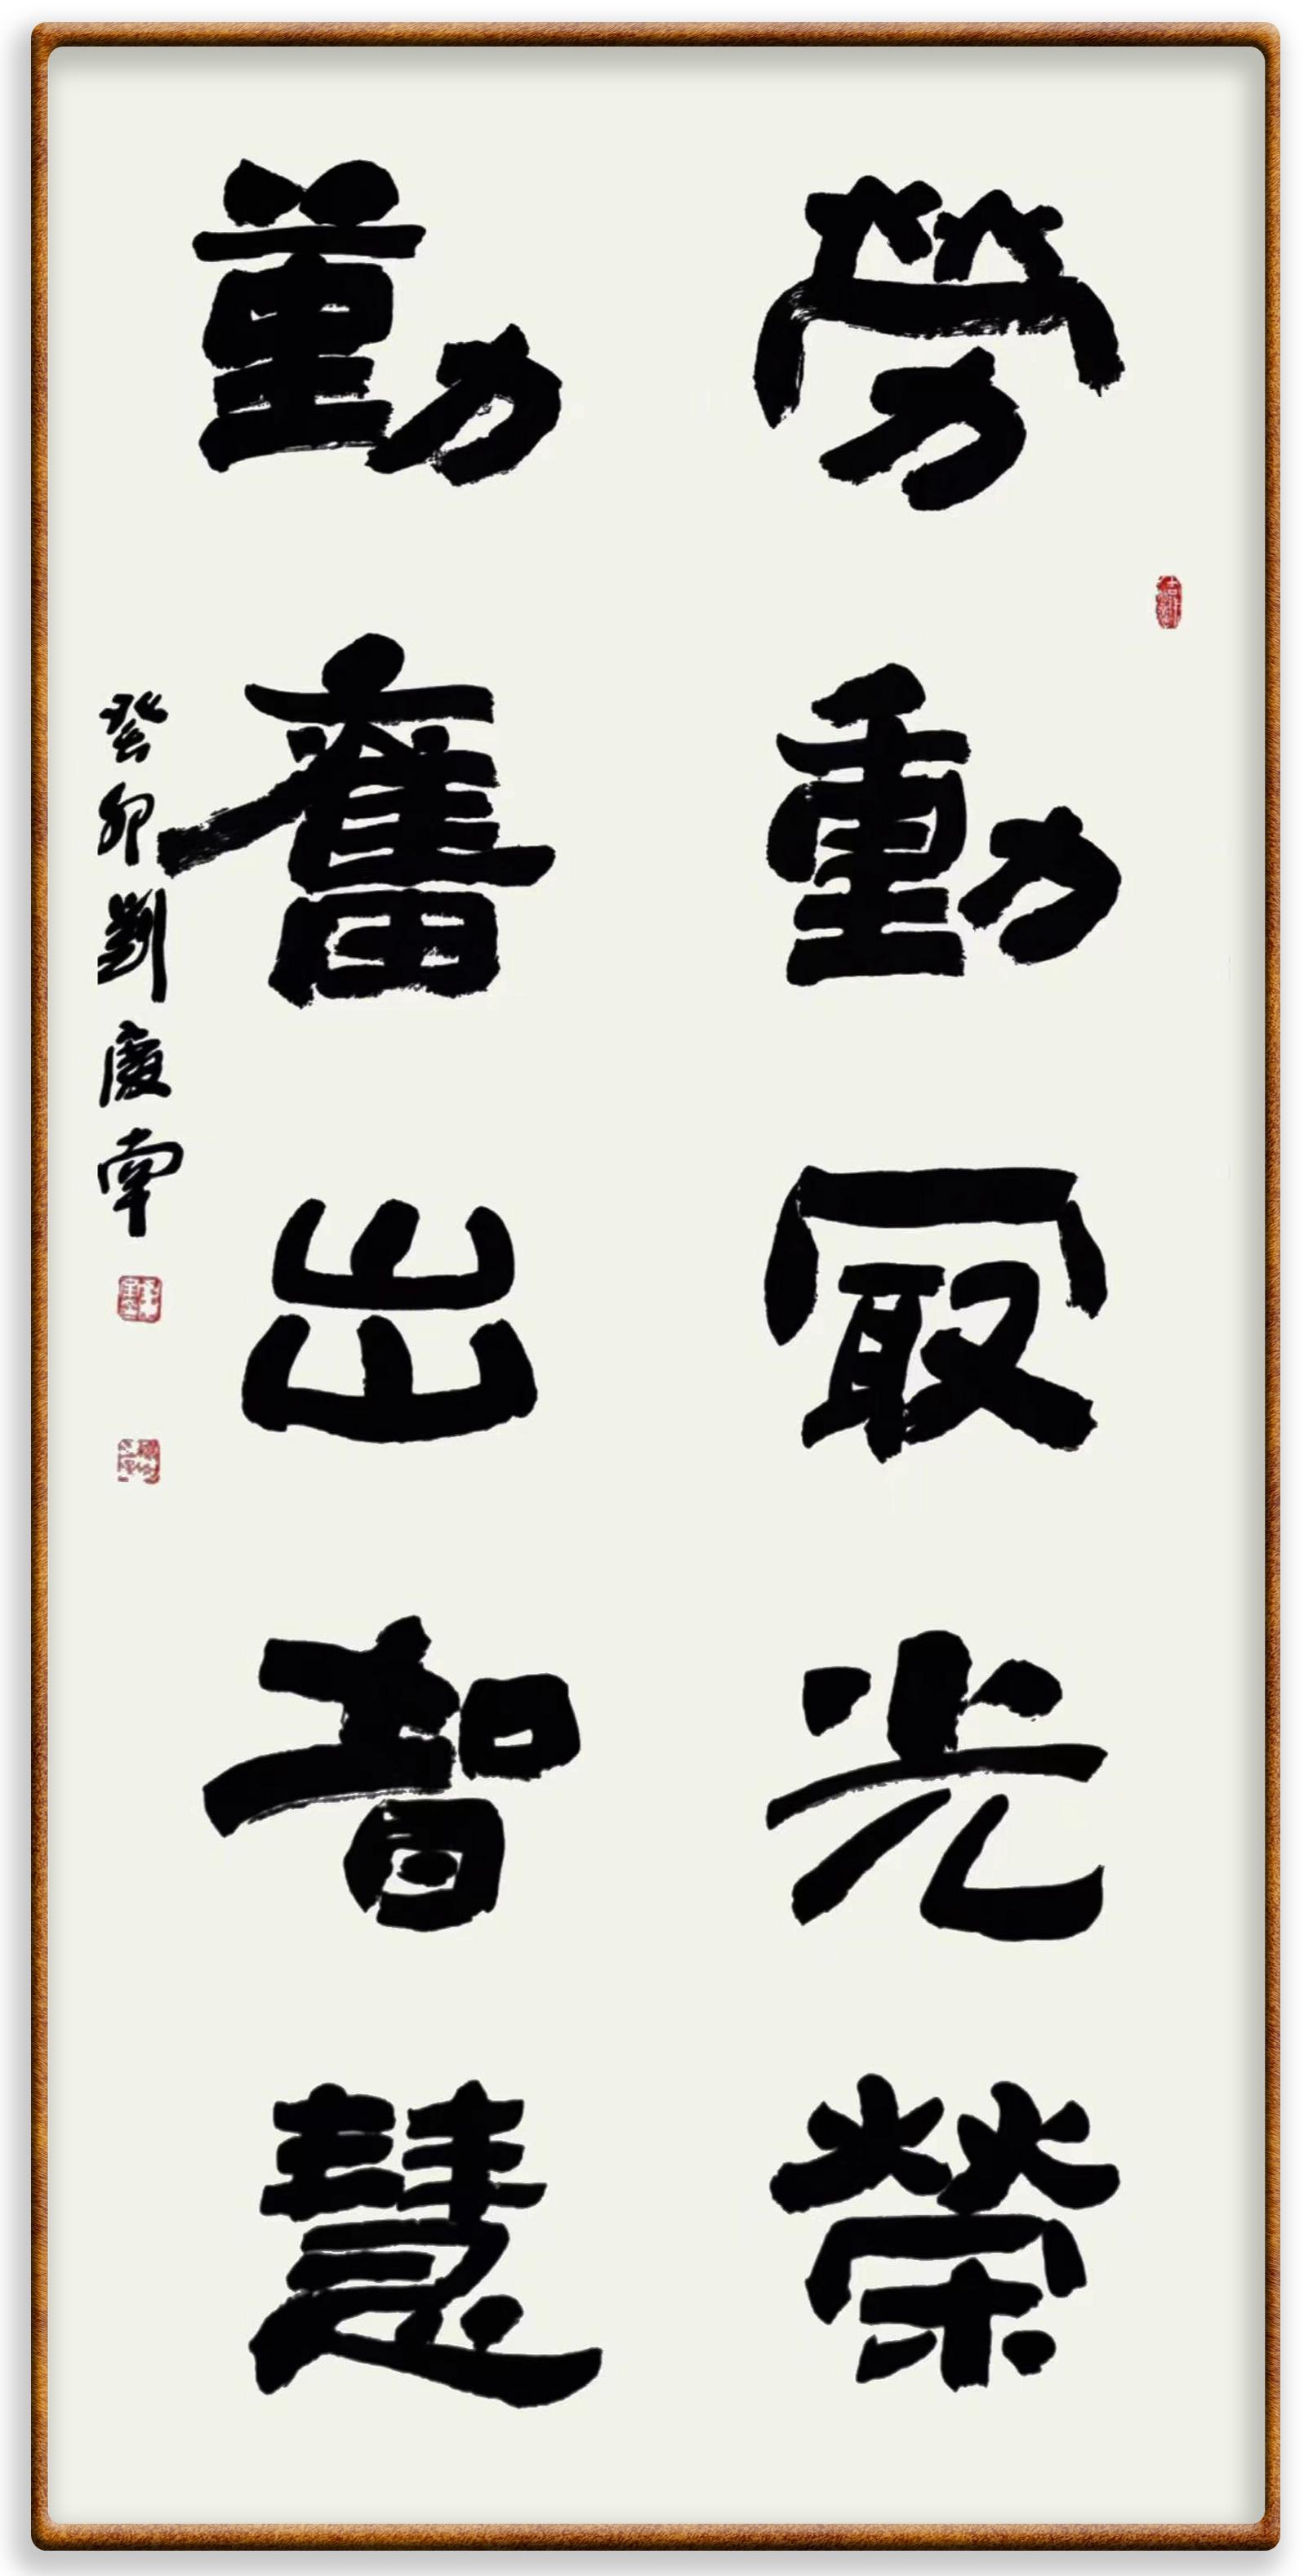 勞動冣光榮
勤奮出智慧
癸卯劉慶南